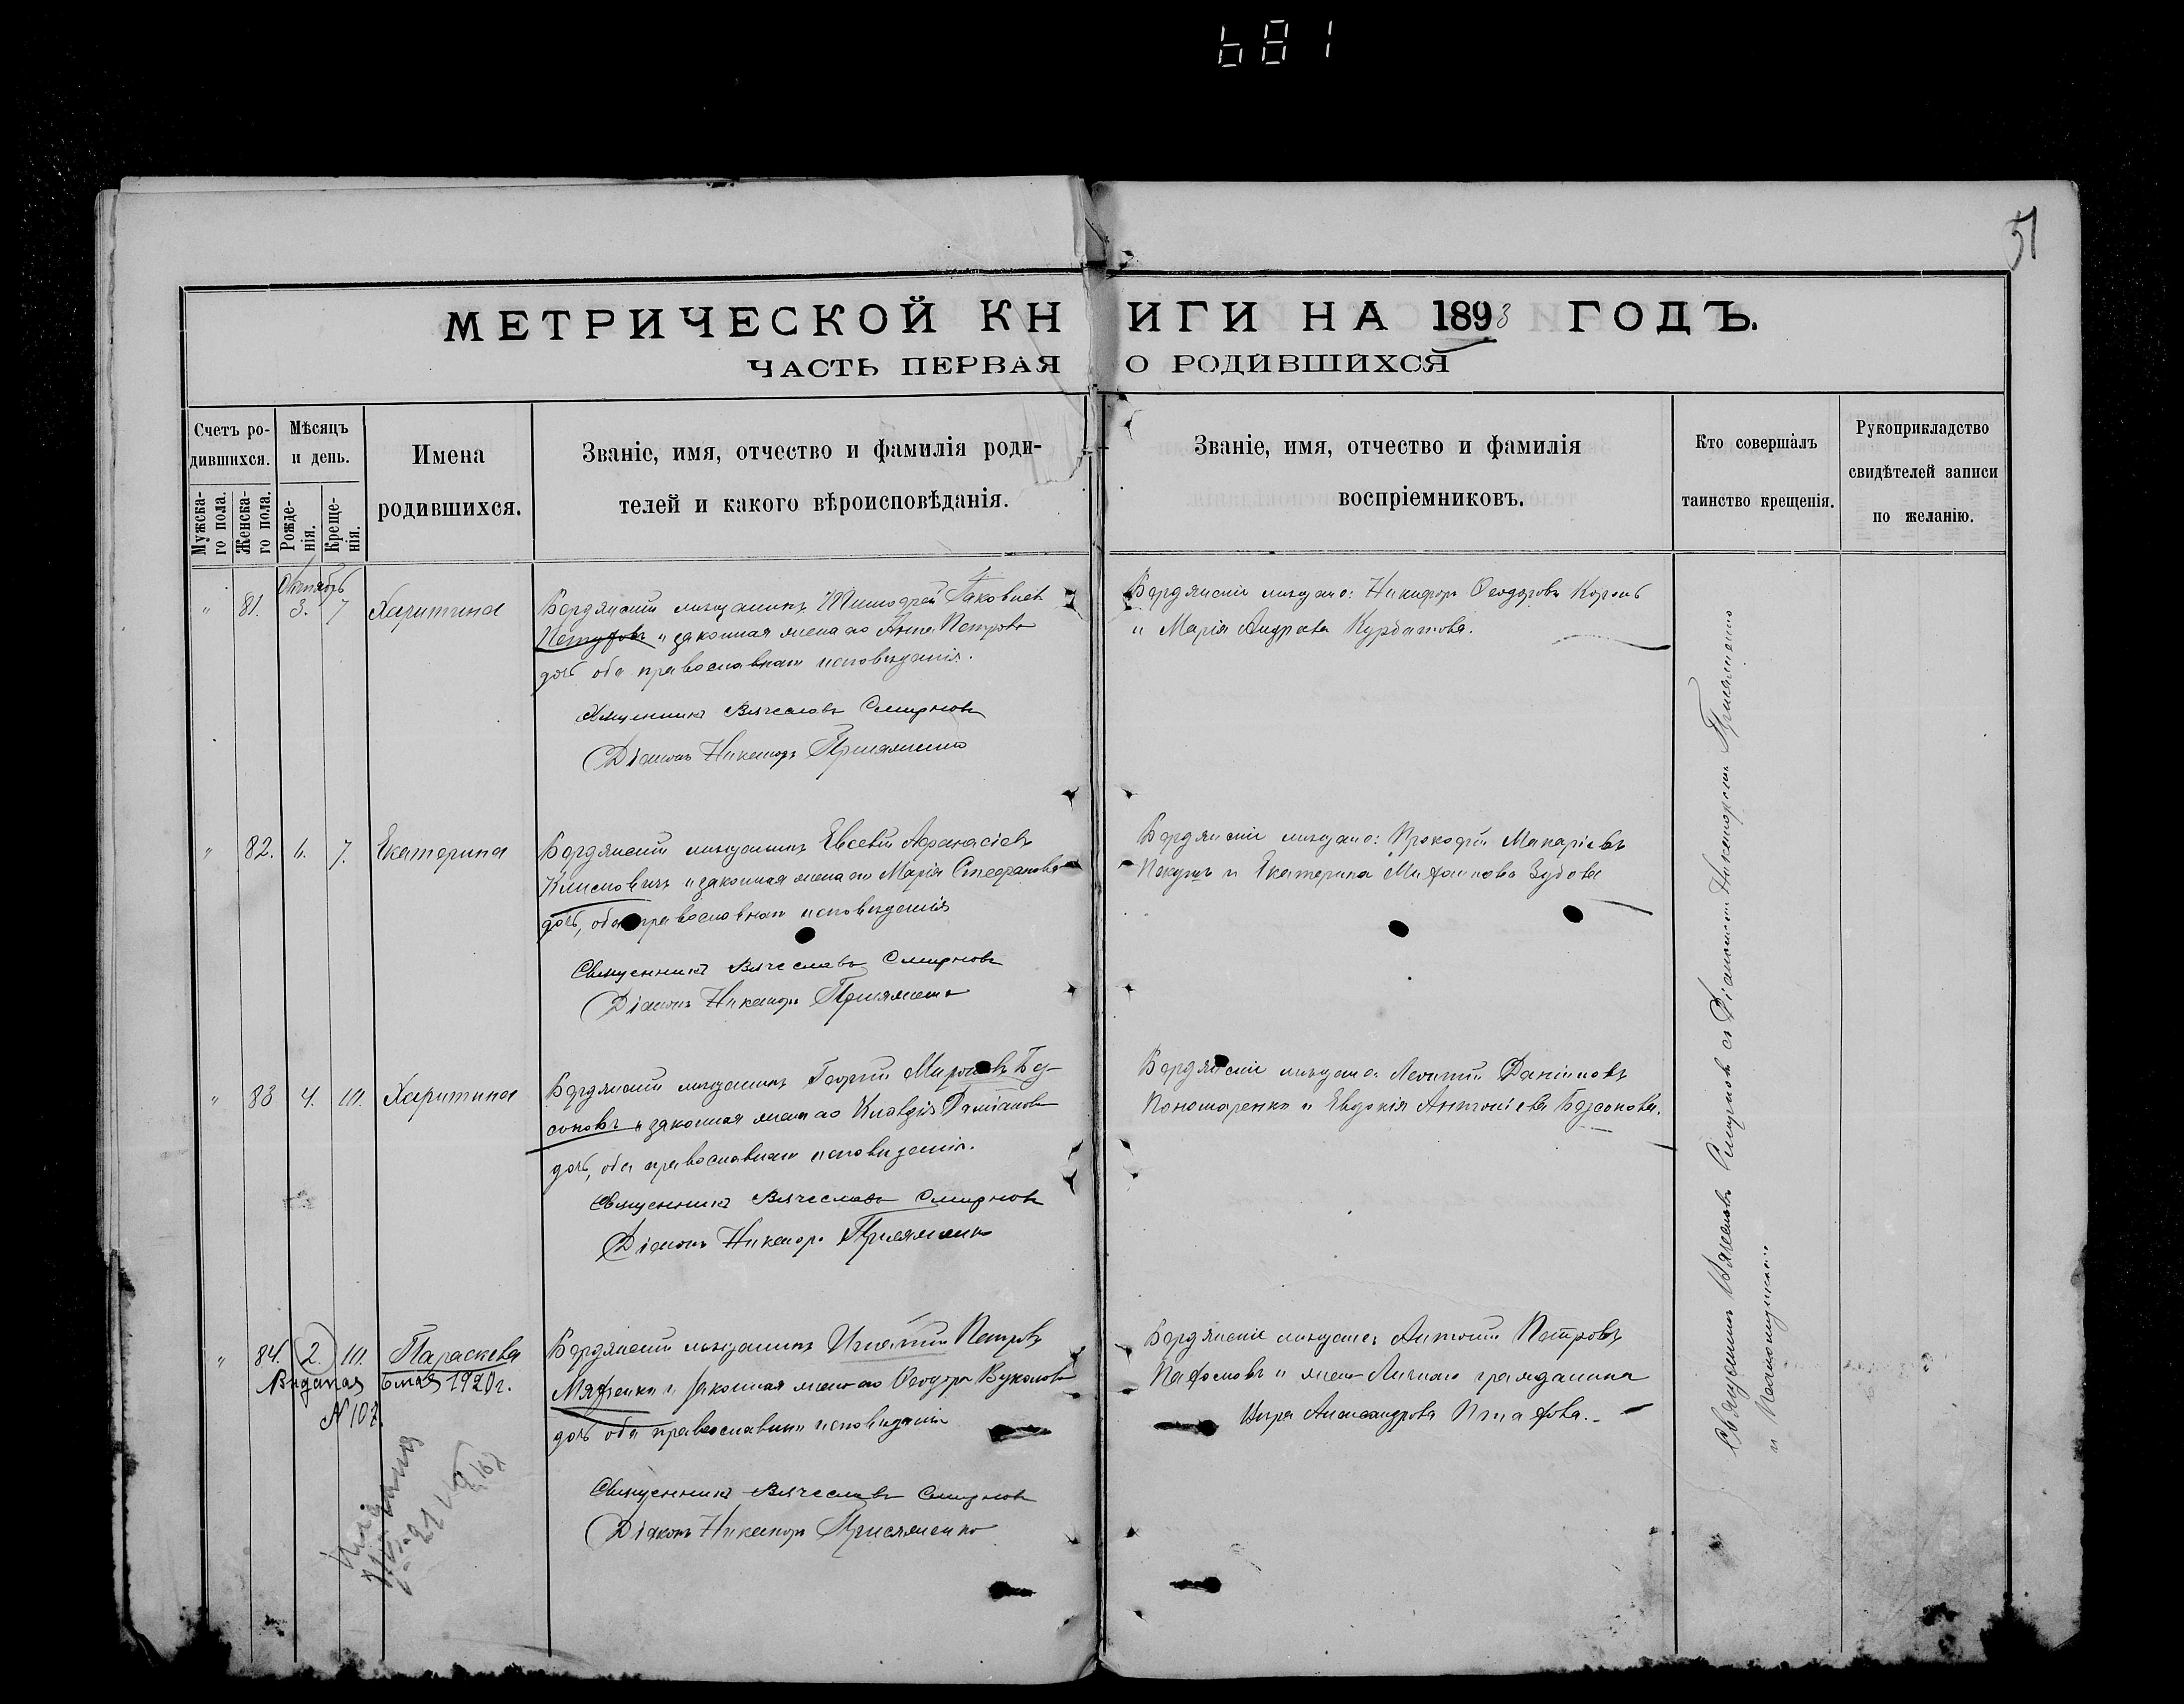 681
51
МЕТРИЧЕСКОЙ КНИГИ НА 1893 ГОДЪ.
ЧАСТЬ ПЕРВАЯ О РОДИВШИХСЯ
Счетъ ро-
дившихся.
Мужска-
го пола.
Женска-
го пола.
Мѣсяцъ
и день.
Рожде-
нія.
Креще-
нія.
Имена
родившихся.
Званіе, имя, отчество и фамилія роди-
телей и какого вѣроисповѣданія.
Званіе, имя, отчество и фамилія
воспріемниковъ.
Кто совершалъ
таинство крещенія.
Рукоприкладство
свидѣтелей записи
по желанію.
Октябрь
" 81. 3. 7 Харитина
Бердянскій мѣщанинъ Тимофей Яковлевъ
и законная жена его Анна Петрова
дочь оба православнаго исповѣданія.
Священникъ Вячеславъ Смирновъ
Діаконъ Никаноръ Присяженко
Бердянскіе мѣщане: Никифоръ Ѳеодоровъ Король
и Марія Андреева Курбатова.
" 82. 6. 7. Екатерина
Бердянскій мѣщанинъ Евсевій Аѳанасіевъ
Климовичъ и законная жена его Марія Стефанова
дочь, оба православнаго исповѣданія
Священникъ Вячеславъ Смирновъ
Діаконъ Никаноръ Присяженко
Бердянскіе мѣщане: Прокофій Макаріевъ
и Екатерина Зубова
" 83 4. 10. Харитина
Бердянскій мѣщанинъ Георгій Мироновъ Без-
соновъ и законная жена его Клавдія Даміанова
дочь, оба православнаго исповѣданія.
Священникъ Вячеславъ Смирновъ
Діаконъ Никаноръ Присяженко
Бердянскіе мѣщане: Леонтій Даніиловъ
Пономаренко и Евдокія Антоніева Безсонова.
" 84. 2. 10. Параскева
Выдана 6 мая 1920 г.
N 107.
Бердянскій мѣщанинъ Игнатій Петровъ
и законная жена его Ѳеодора Вуколова
дочь оба православнаго исповѣданія
Священникъ Вячеславъ Смирновъ
Діаконъ Никаноръ Присяженко
Бердянскіе мѣщане: Антоній Петровъ
и жена Личнаго гражданина
Александрова
Священникъ Вячеславъ Смирновъ съ Діакономъ Никаноромъ Присяженко
и Псаломщикомъ